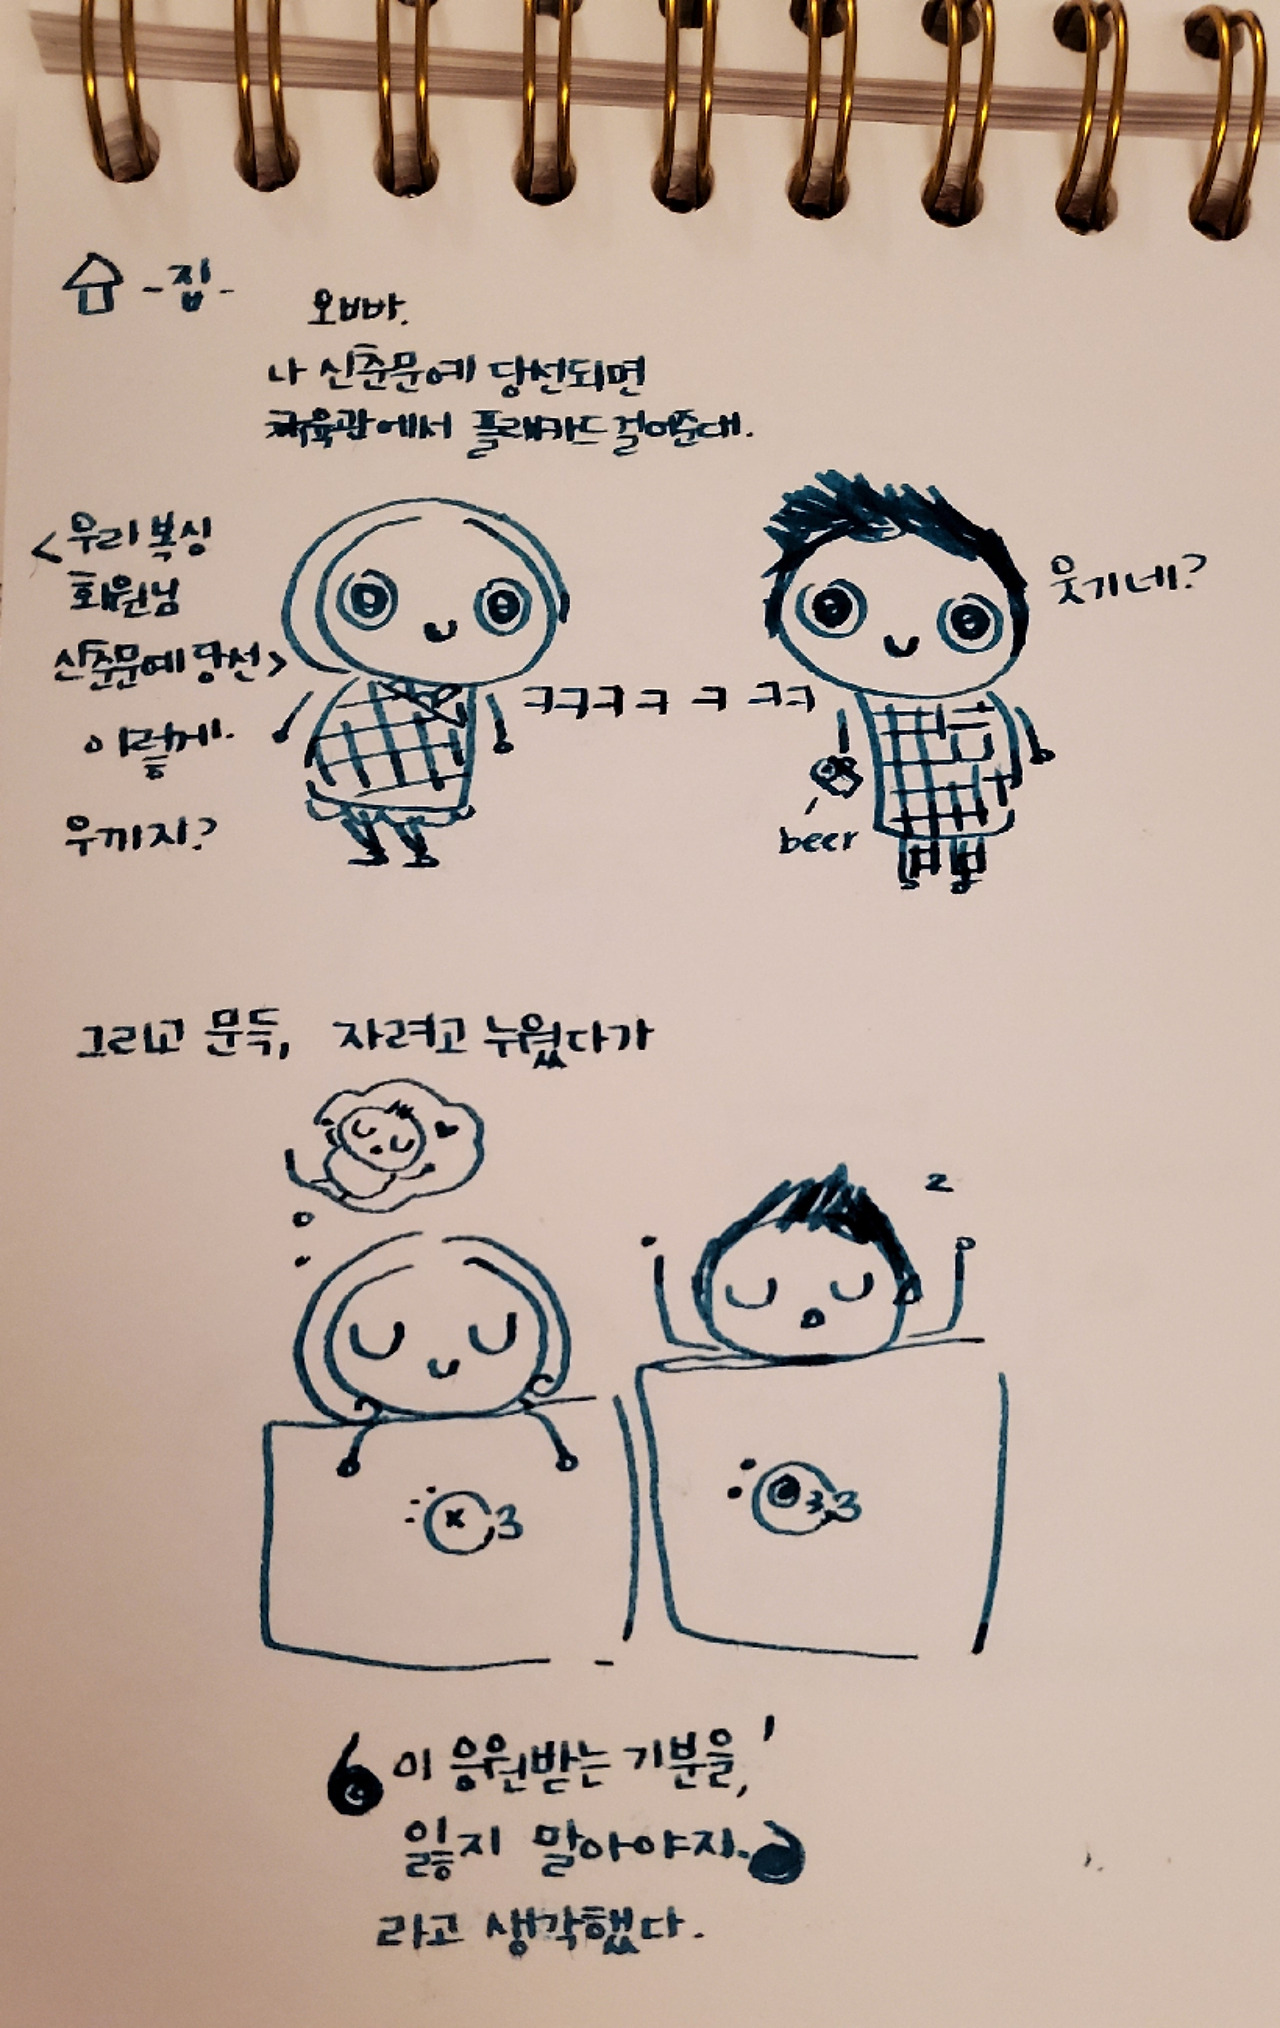 -집-
오빠.
나 신춘문예 당선되면
체육관에서 플래카드 걸어준대.
<우리 복싱
회원님
신춘문예 당선>
이렇게.
우끼지?
ㅋㅋㅋㅋ ㅋ ㅋㅋ
웃기네?
beer
그리고 문득, 자려고 누웠다가
z
이 응원받는 기분을,
잃지 말아야지.
라고 생각했다.